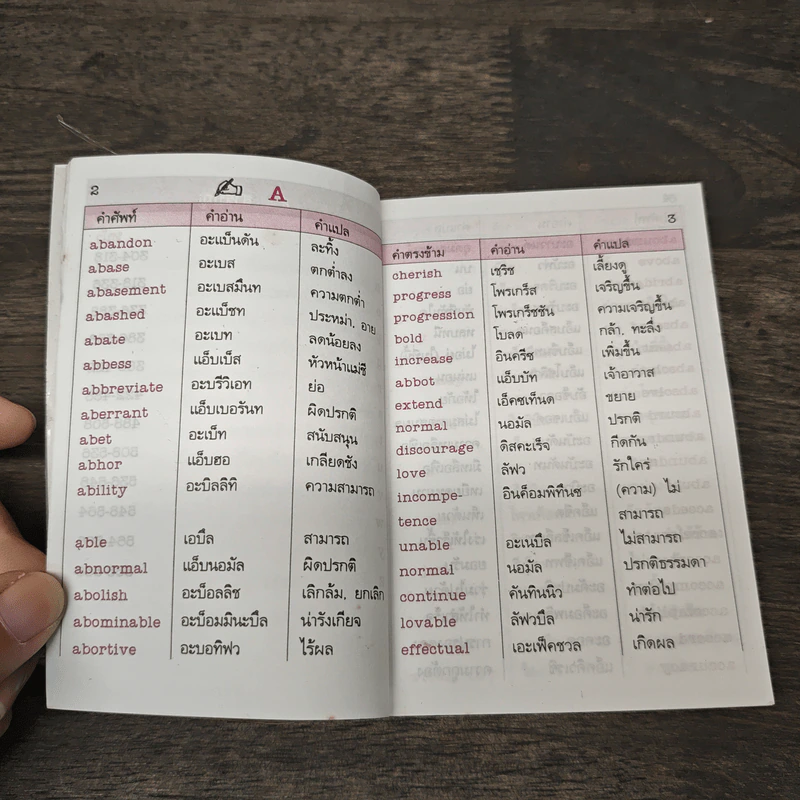 2
A
คำศัพท์ คำอ่าน คำแปล
abandon อะแบ็นดัน ละทิ้ง
abase อะเบส ตกต่ำลง
abasement อะเบสมึนท ความตกต่ำ
abashed อะแบ็ชท ประหม่า, อาย
abate อะเบท ลดน้อยลง
abbess แอ็บเบ็ส หัวหน้าแม่ชี
abbreviate อะบรีวิเอท ย่อ
aberrant แอ็บเบอรันท ผิดปรกติ
abet อะเบ็ท สนับสนุน
abhor แอ็บฮอ เกลียดชัง
ability อะบิลลิทิ ความสามารถ
able เอบึล สามารถ
abnormal แอ็บนอมัล ผิดปรกติ
abolish อะบ็อลลิช เลิกล้ม, ยกเลิก
abominable อะบ็อมมินะบึล น่ารังเกียจ
abortive อะบอทิฟว ไร้ผล
3
คำตรงข้าม คำอ่าน คำแปล
cherish เชริช เลี้ยงดู
progress โพรเกร็ส เจริญขึ้น
progression โพรเกร็ชชัน ความเจริญขึ้น
bold โบลด กล้า, ทะลึ่ง
increase อินครีซ เพิ่มขึ้น
abbot แอ็บบัท เจ้าอาวาส
extend เอ็คซเท็นด ขยาย
normal นอมัล ปรกติ
discourage ดิสคะเร็จ กีดกัน
love ลัฟว รักใคร่
incompe- อินค็อมพิทึนซ (ความ) ไม่
tence สามารถ
unable อะเนบึล ไม่สามารถ
normal นอมัล ปรกติธรรมดา
continue คันทินนิว ทำต่อไป
lovable ลัฟวบึล น่ารัก
effectual เอะเฟ็คชวล เกิดผล